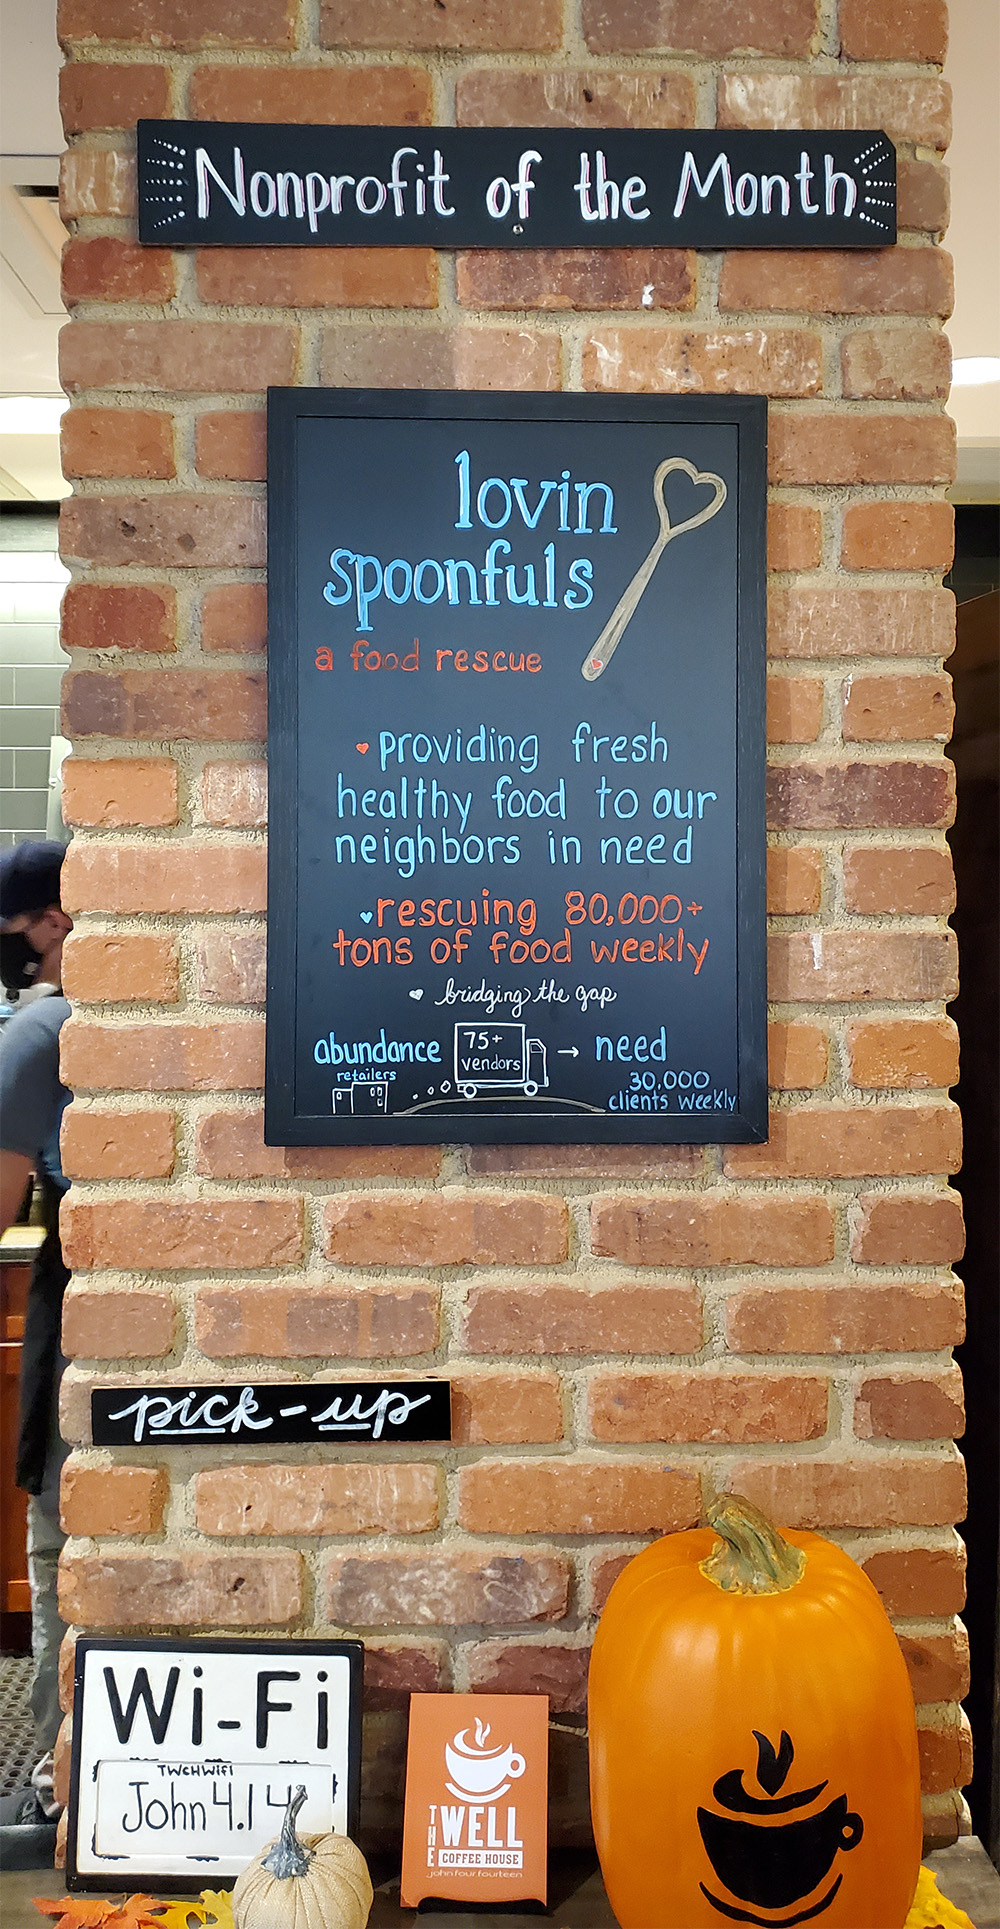 Nonprofit of the Month
lovin
spoonfuls
a food rescue
providing fresh
healthy food to our
neighbors in need
rescuing 80,000+
tons of food weekly
bridging the gap
abundance
retailers
75+
vendors
→ need
30,000
clients weekly
pick-up
Wi-Fi
TWCHWifi
John 4.14
THE
WELL
COFFEE HOUSE
john four fourteen